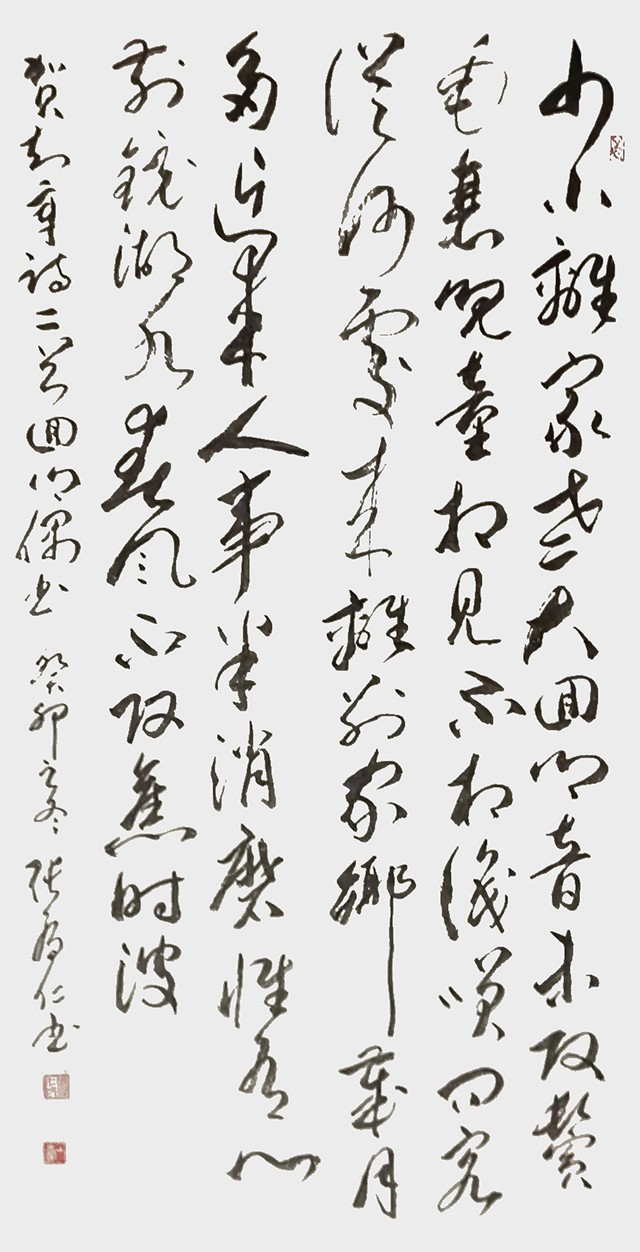 少小離家老大囬鄉音未改鬢
毛衰兒童相見不相識笑問客
從何處來離別家鄉歲月
多近來人事半消磨惟有門
前鏡湖水春風不改舊時波
賀知章詩二首囬鄉偶書 癸卯之冬 張仁書